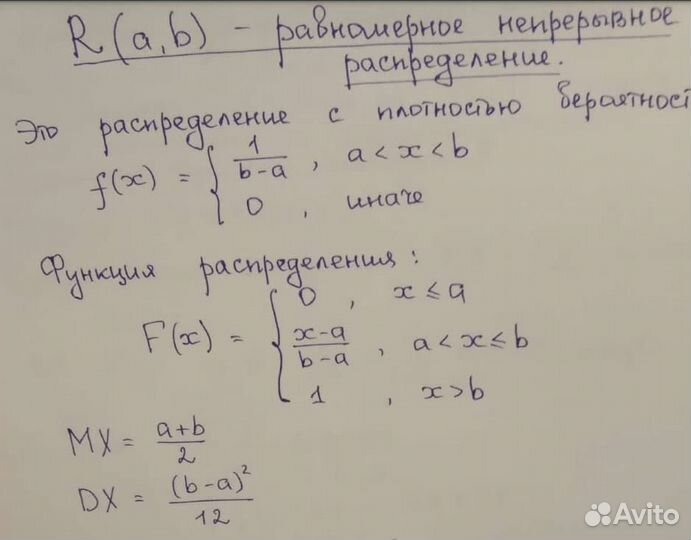 R(a,b) – равномерное непрерывное
распределение.
Это распределение с плотностью бероятност
f(x) = { 1/(b-a) , a < x < b
0 , иначе
Функция распределения:
F(x) = { 0 , x ≤ a
(x-a)/(b-a) , a < x ≤ b
1 , x > b
MX = (a+b)/2
DX = (b-a)²/12
Avito